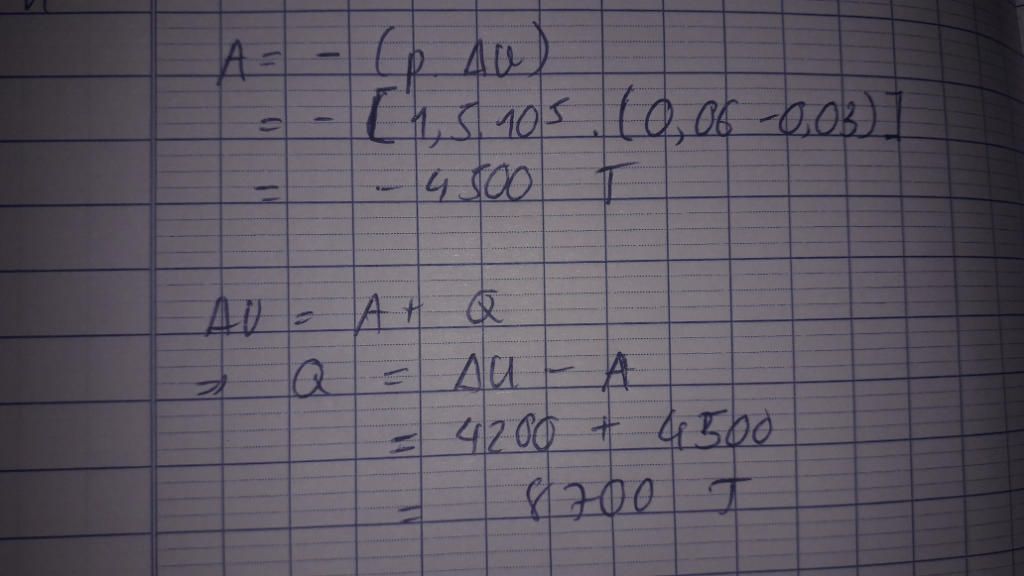 A = - (p. ΔU)
= - [1,5.10⁵.(0,06 -0,03)]
= - 4500 J
ΔU = A + Q
⇒ Q = ΔU - A
= 4200 + 4500
= 8700 J